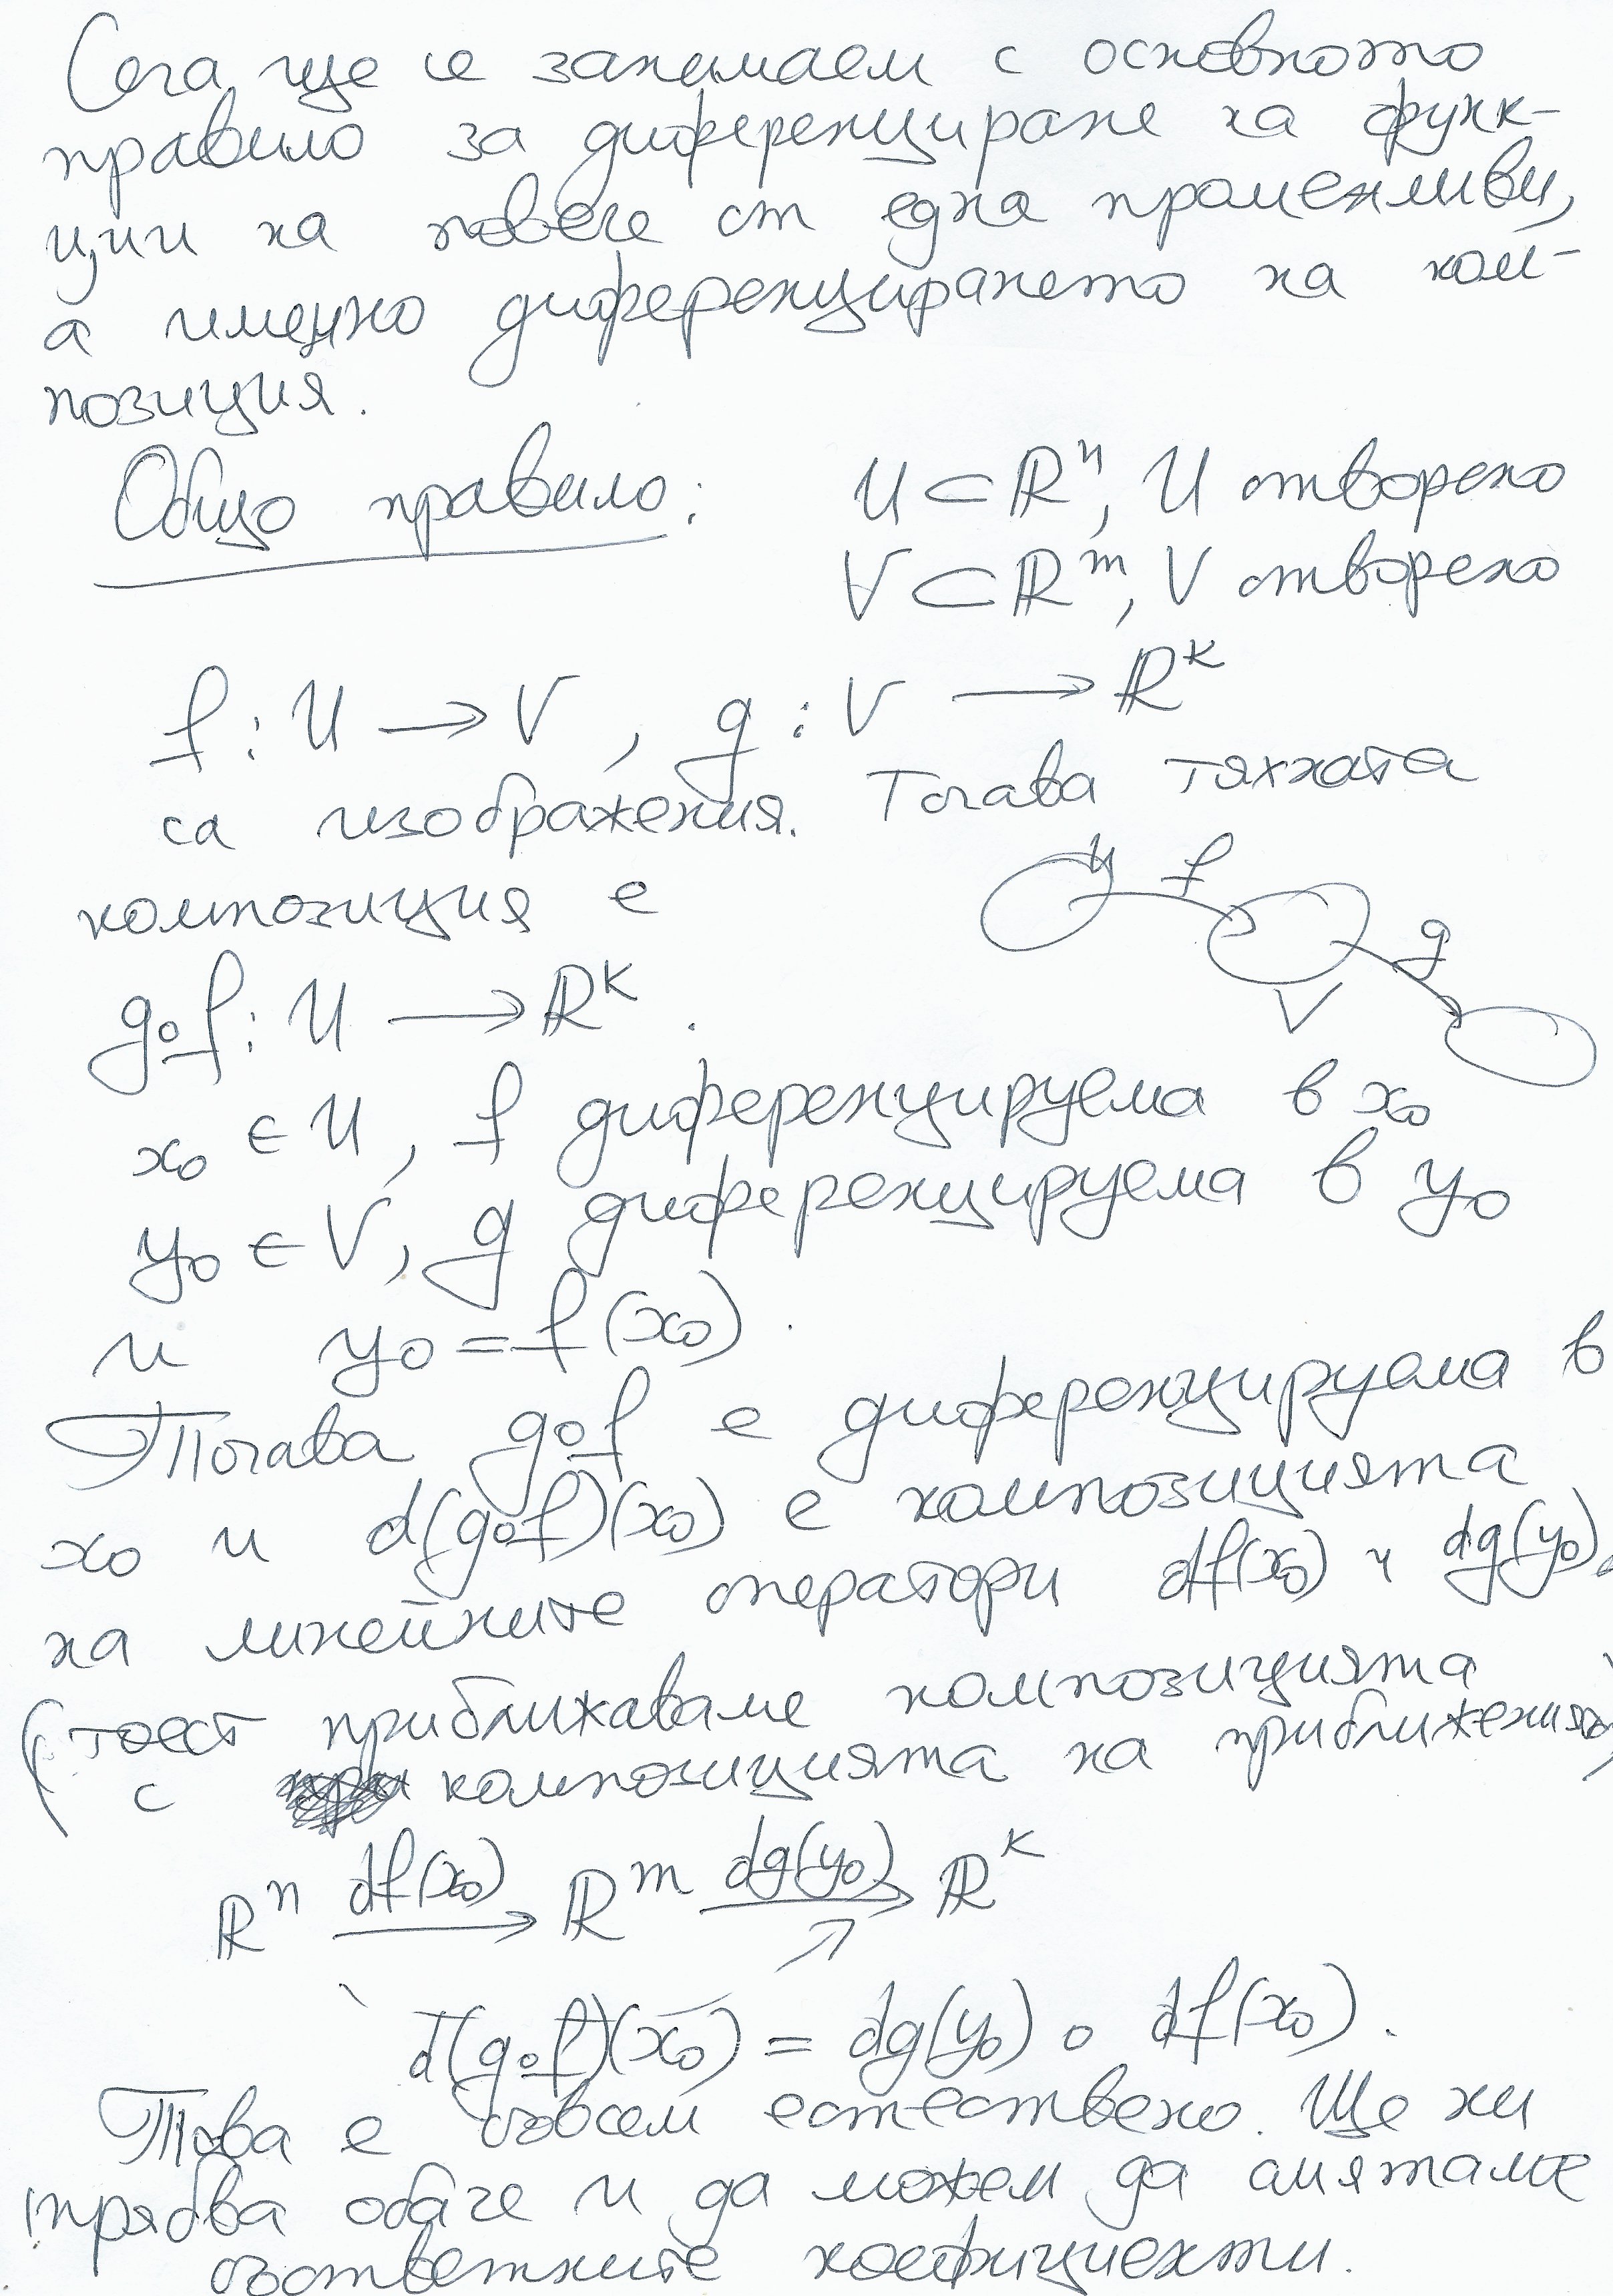 Сега ще се занимаем с основното
правило за диференциране на функ-
ции на повече от една променливи,
а именно диференцирането на ком-
позиция.
Общо правило: U ⊂ ℝⁿ, U отворено
V ⊂ ℝᵐ, V отворено
f : U → V , g : V → ℝᵏ
са изображения. Тогава тяхната
композиция е
U f
g
V
g∘f : U → ℝᵏ .
x₀ ∈ U , f диференцируема в x₀
y₀ ∈ V , g диференцируема в y₀
и y₀ = f(x₀) .
Тогава g∘f е диференцируема в
x₀ и d(g∘f)(x₀) е композицията
на линейните оператори df(x₀) и dg(y₀).
(тоест приближаваме композицията
с композицията на приближенията)
ℝⁿ df(x₀) → ℝᵐ dg(y₀) → ℝᵏ
d(g∘f)(x₀) = dg(y₀) ∘ df(x₀) .
Това е съвсем естествено. Ще ни
трябва обаче и да можем да смятаме
съответните коефициенти.